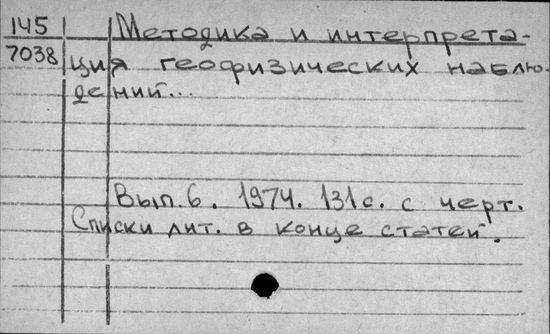 145
7038
Методика и интерпрета-
ция геофизических наблю-
дений...
Вып. 6. 1974. 131 с. с черт.
Списки лит. в конце статей.